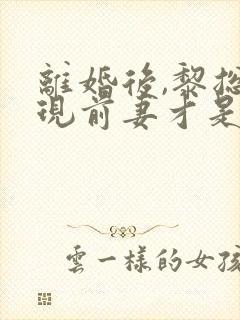 離婚後,黎總
現前妻才是
雲一樣的女孩